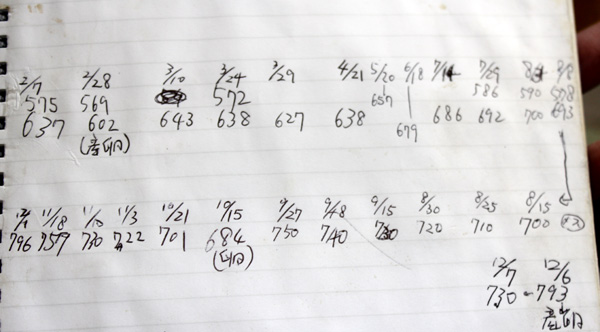 2/7 2/28 3/10 3/24 3/29 4/21 5/20 6/18 7/29 8/8
575 569 572 657 586 590 578
637 602 643 638 627 638 679 686 692 700 693
(産卵)
12/1 11/18 11/10 11/3 10/21 10/15 9/27 9/18 9/15 8/30 8/25 8/15
796 757 730 722 701 684 750 740 730 720 710 700
(産卵)
12/7 12/6
730-793
産卵